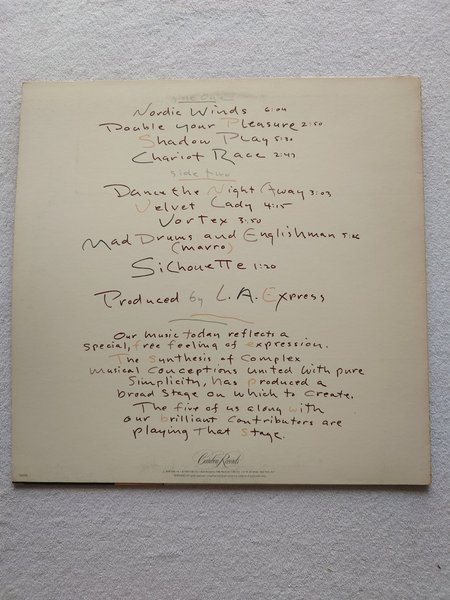 side one
Nordic Winds 6:04
Double your Pleasure 2:50
Shadow Play 5:30
Chariot Race 2:43
side two
Dance the Night Away 3:03
Velvet Lady 4:15
Vortex 3:50
Mad Drums and Englishman
(mavro)
Silhouette 1:20
Produced by L.A. Express
Our music today reflects a
special, free feeling of expression.
The synthesis of complex
musical conceptions united with pure
simplicity, has produced a
broad stage on which to create.
The five of us along with
our brilliant contributors are
playing that stage.
Caribou Records